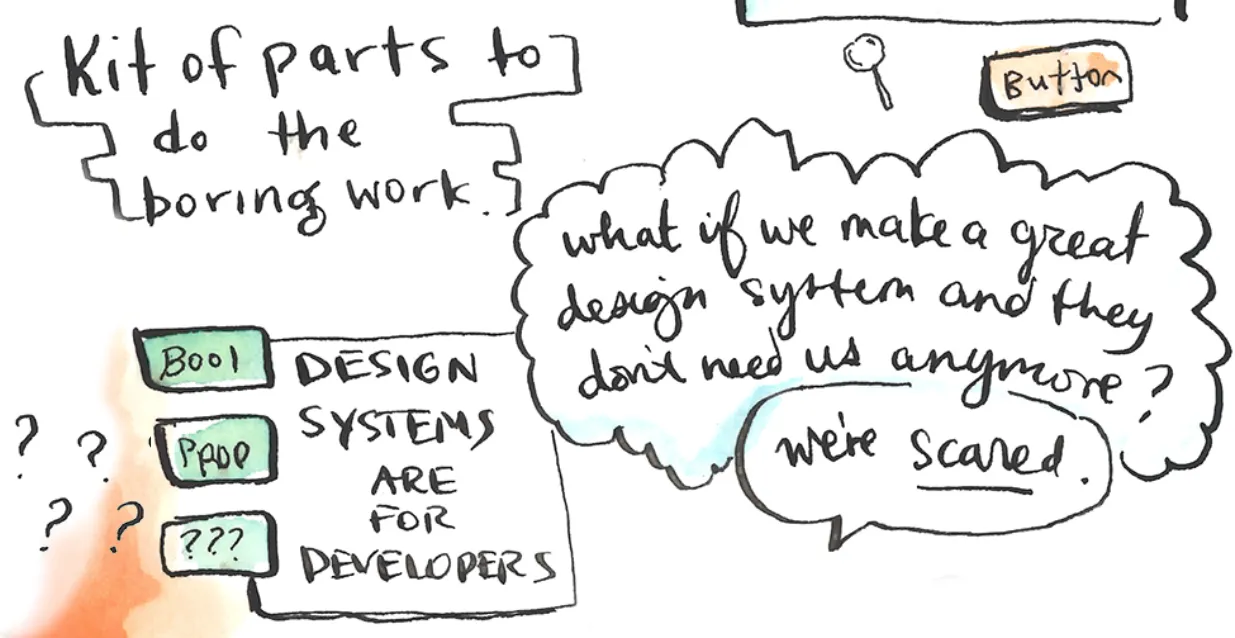 Kit of parts to
do the
boring work.
Button
what if we make a great
design system and they
don't need us anymore?
we're scared.
Bool
Prop
???
? ?
? ?
DESIGN
SYSTEMS
ARE
FOR
DEVELOPERS